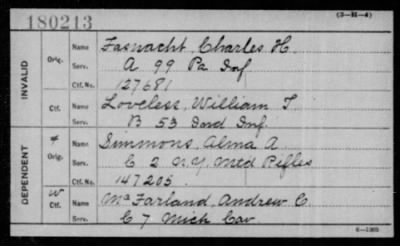 180213
(3—31—4)
INVALID
Orig.
Name Fasnacht, Charles H.
Serv. A 99 Pa Inf.
Ctf. No. 127681
Ctf.
Name Loveless, William T.
Serv. B 53 Inf.
DEPENDENT
Orig.
Name Simmons, Alma A.
Serv. C 2 N.Y. Mtd Rifles
Ctf. No. 147205
W
Ctf.
Name McFarland, Andrew C.
Serv. C 7 Mich Cav
6—1305